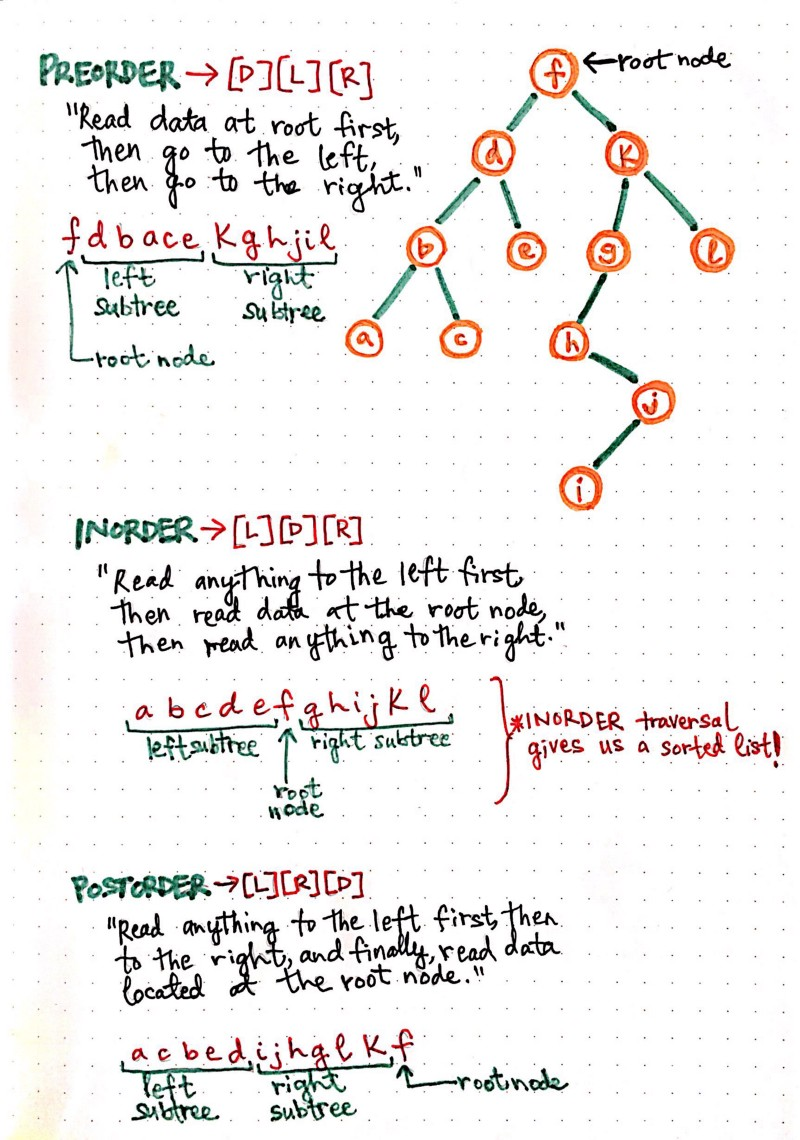 PREORDER → [D][L][R]
"Read data at root first,
then go to the left,
then go to the right."
f d b a c e K g h j i l
left
subtree
right
subtree
root node
← root node
f
d
K
b
e
g
l
a
c
h
j
i
INORDER → [L][D][R]
"Read anything to the left first,
then read data at the root node,
then read anything to the right."
a b c d e f g h i j K l
left subtree
right subtree
root
node
*INORDER traversal
gives us a sorted list!
POSTORDER → [L][R][D]
"Read anything to the left first, then
to the right, and finally, read data
located at the root node."
a c b e d i j h g l K f
left
subtree
right
subtree
root node